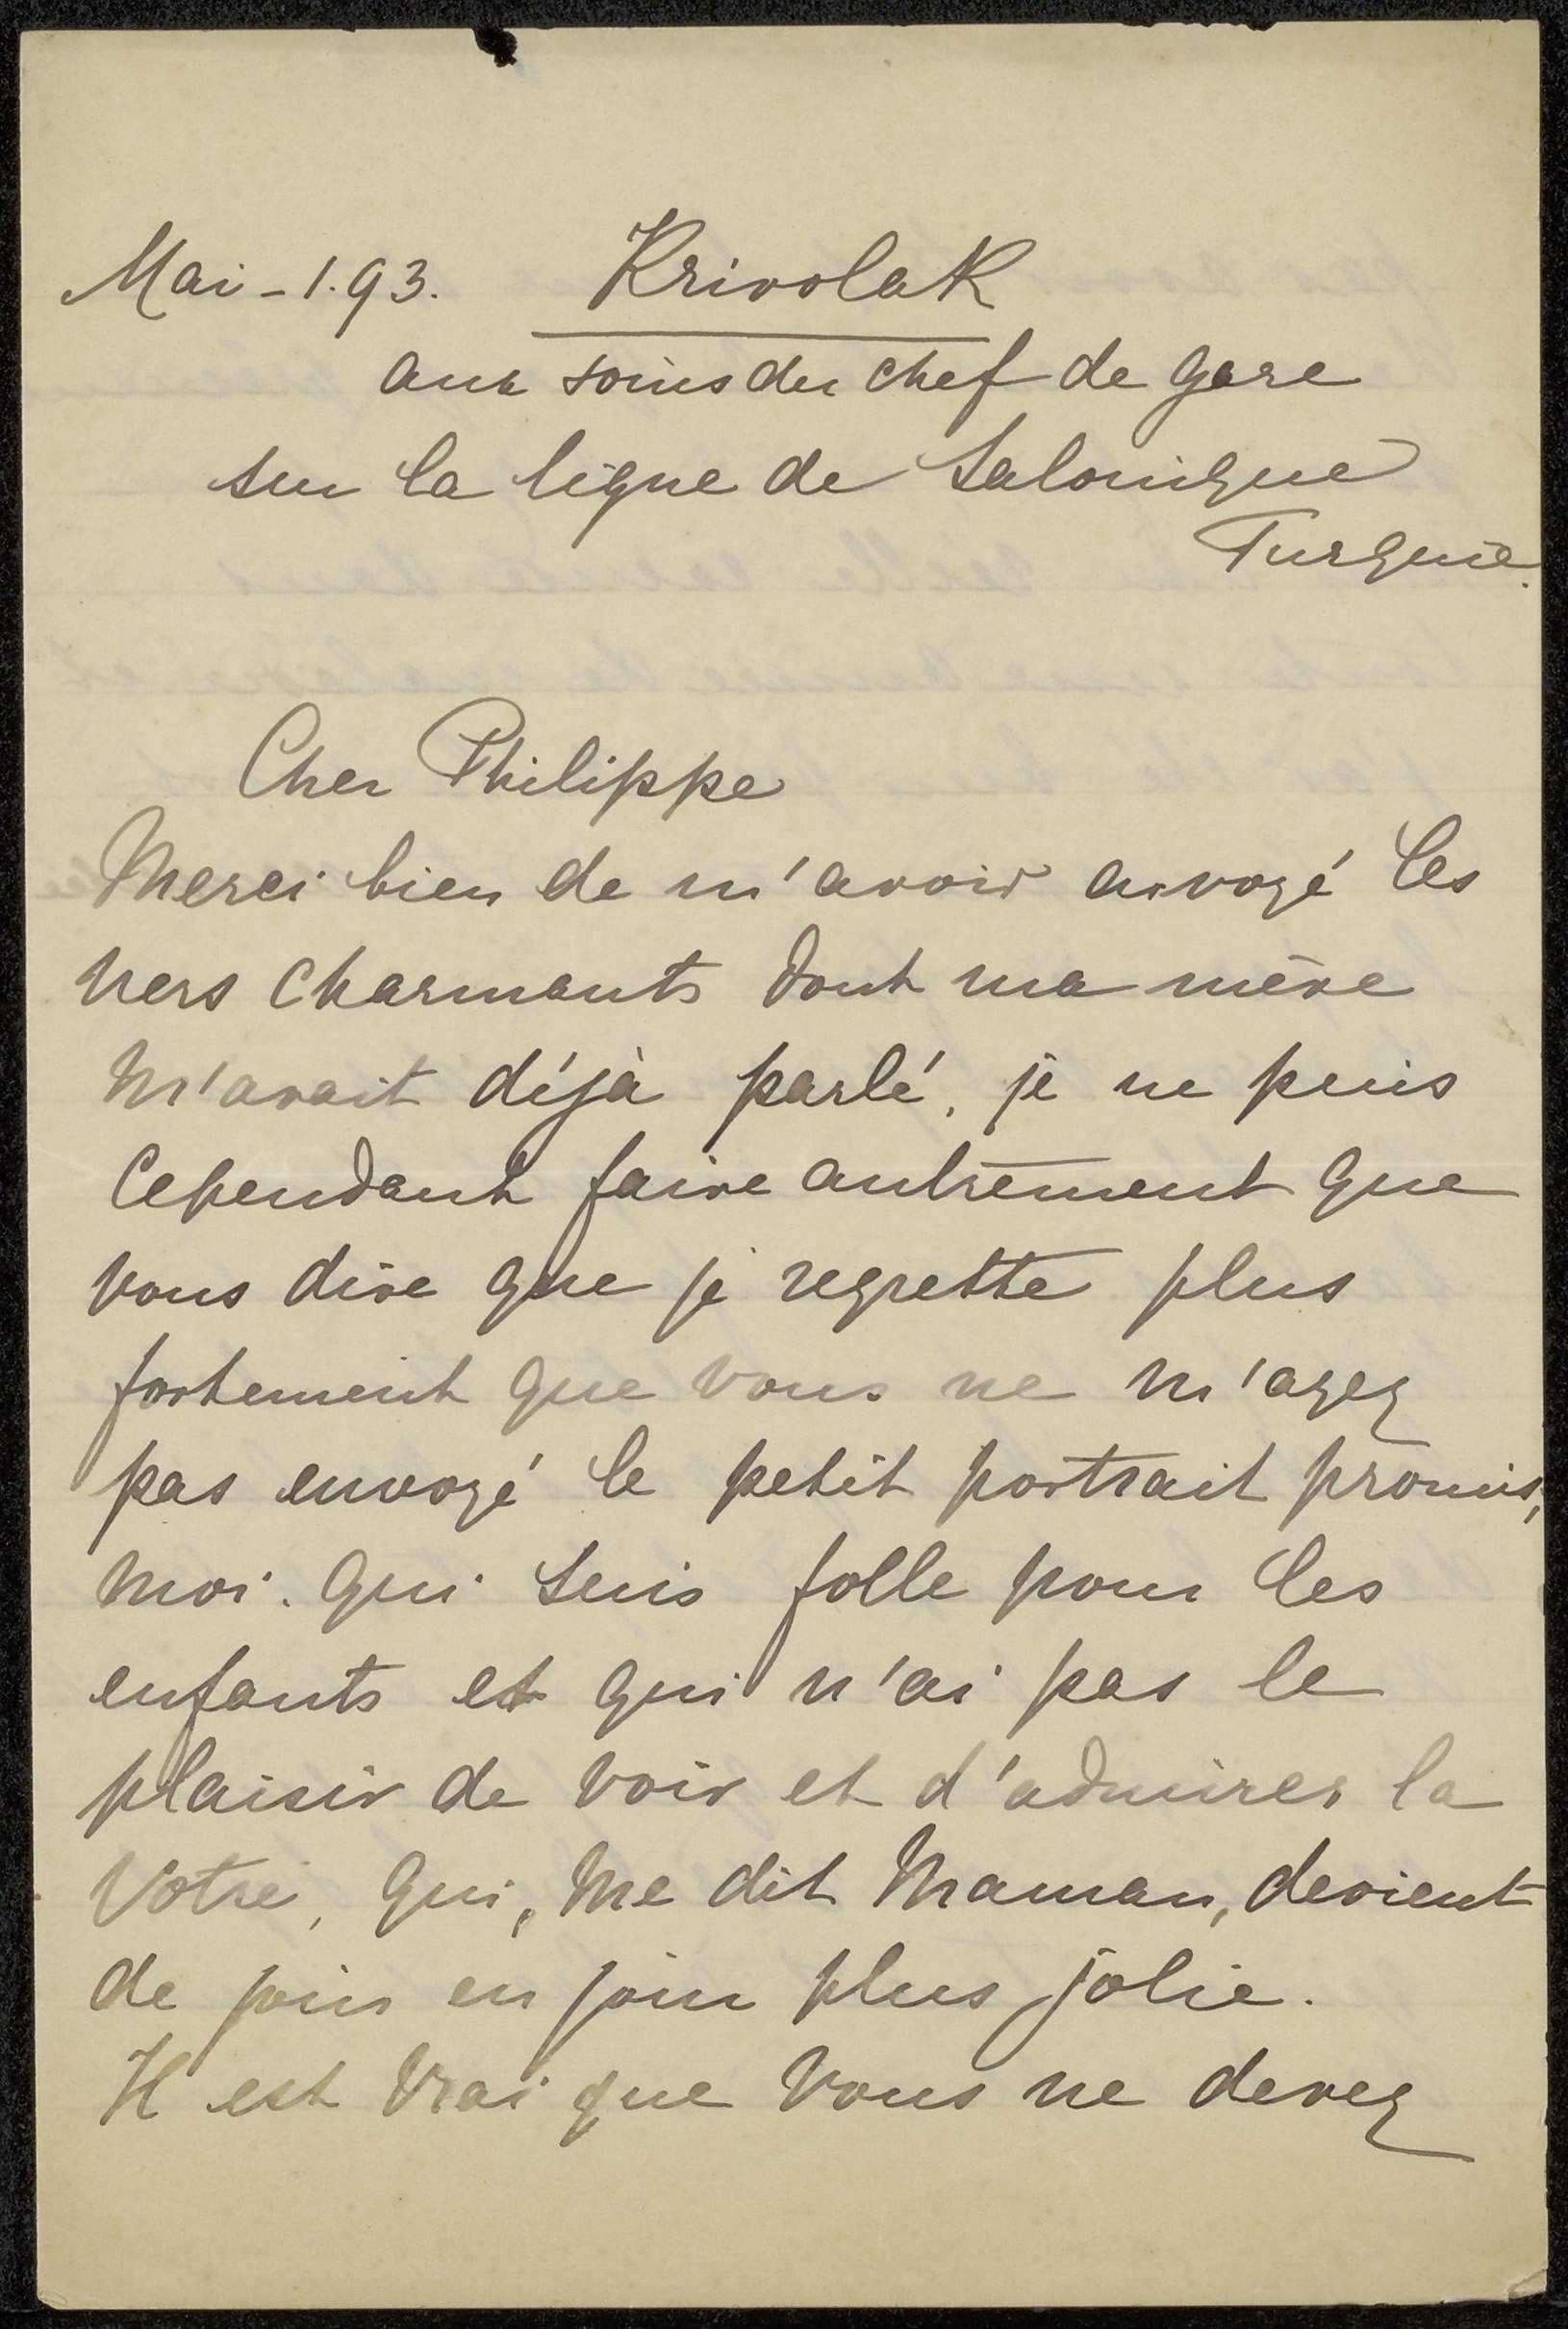 Mai - 1.93. Krivolak
aux soins du chef de gare
sur la ligne de Salonique
Turquie.
Cher Philippe
Merci bien de m'avoir envoyé les
vers charmants dont ma mère
m'avait déjà parlé, je ne puis
cependant faire autrement que
vous dire que je regrette plus
fortement que vous ne m'ayez
pas envoyé le petit portrait promis,
moi. qui suis folle pour les
enfants et qui n'ai pas le
plaisir de voir et d'admirer la
votre, qui, me dit Maman, devient
de jour en jour plus jolie.
Il est vrai que vous ne devez